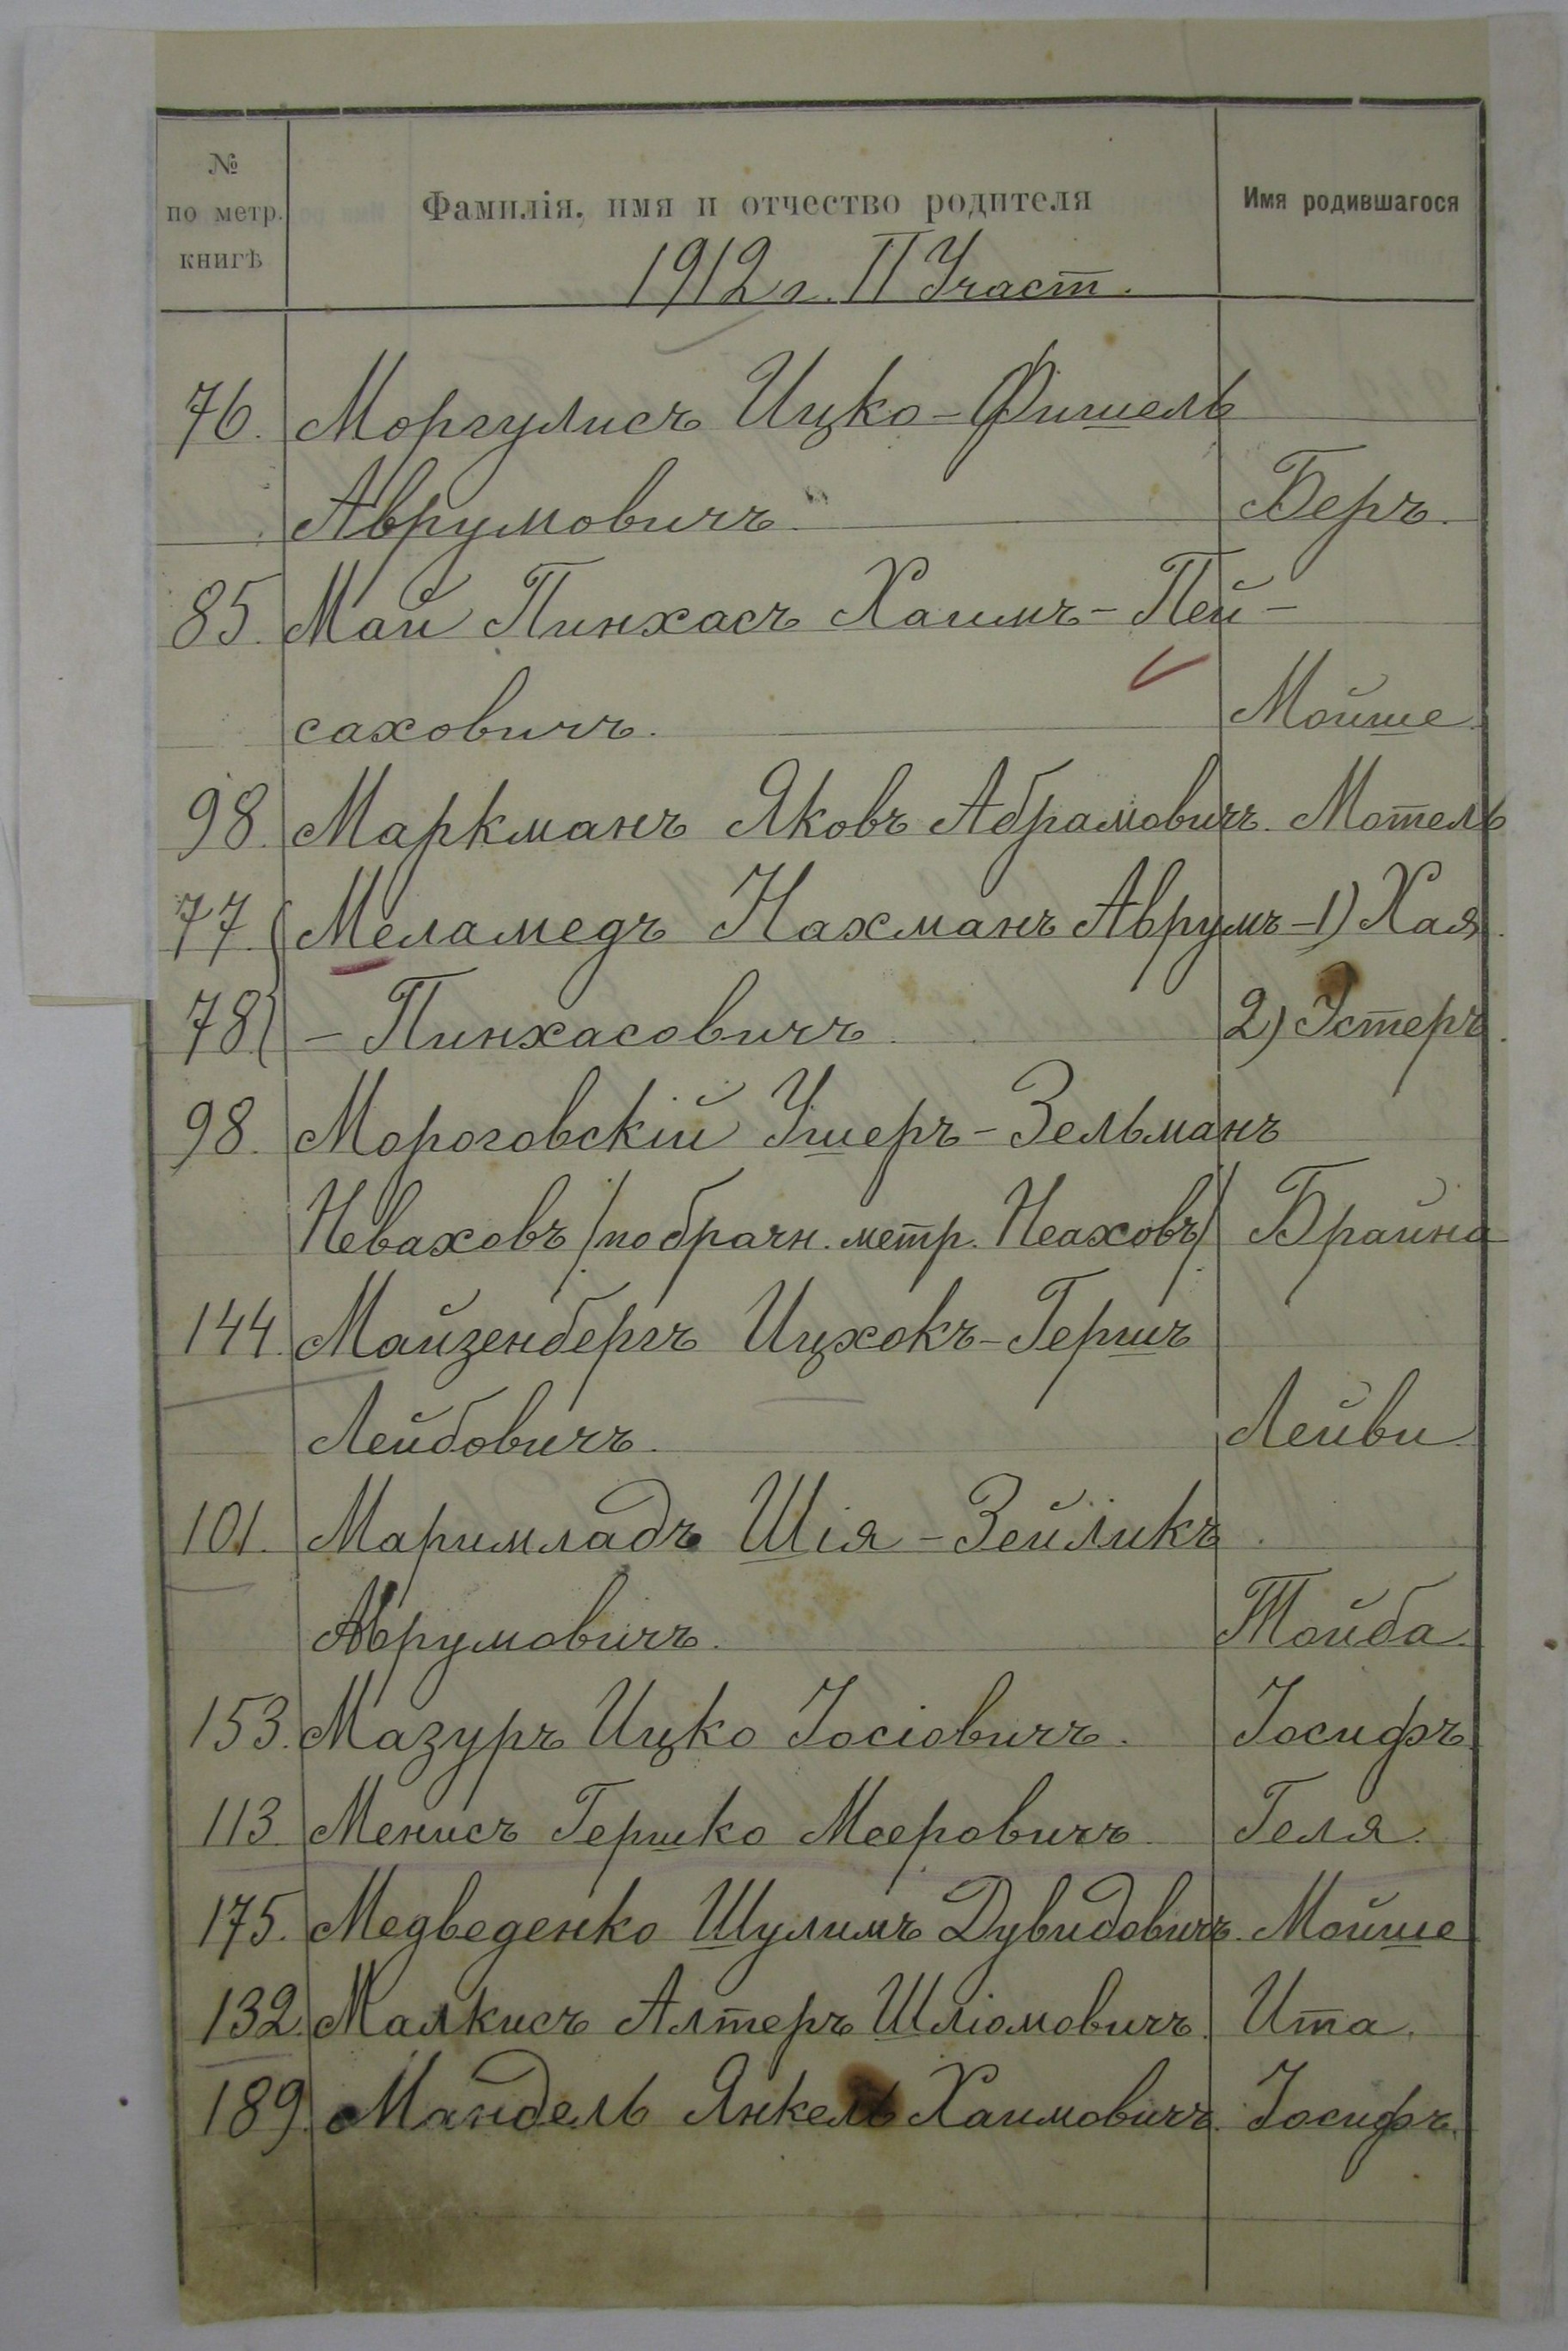 № по метр. книгѣ Фамилія, имя и отчество родителя Имя родившагося
1912 г. II Участ.
76. Моргулисъ Ицко-Фишель
Аврумовичъ. Беръ.
85. Май Пинхасъ Хаимъ-Пей-
саховичъ. Мойше.
98. Маркманъ Яковъ Абрамовичъ. Мотель
77. Меламедъ Нахманъ Аврумъ- 1) Хая.
78 - Пинхасовичъ. 2) Эстеръ.
98. Мороговскій Ушеръ-Зельманъ
Неваховъ /по брачн. метр. Неаховъ/ Брайна
144. Майзенбергъ Ицхокъ-Гершъ
Лейбовичъ. Лейви.
101. Маримладъ Шія-Зейликъ.
Аврумовичъ. Тойба.
153. Мазуръ Ицко Іосіовичъ. Іосифъ.
113. Менисъ Гершко Мееровичъ. Геля.
175. Медведенко Шулимъ Дувидовичъ. Мойше
132. Малкисъ Алтеръ Шліомовичъ. Ита.
189. Мандель Янкель Хаимовичъ. Іосифъ.